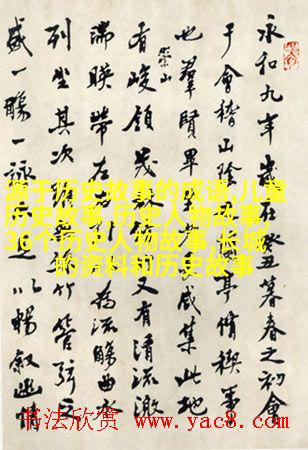 永和九年歲在癸丑暮春之初會
于會稽山陰亭脩禊事
也羣賢畢咸集此地
有崇山峻領茂又有清流激
湍暎帶左為流觴曲水
列坐其次竹管弦之
盛一觴一詠以暢敘幽情
源于历史故事的成语,儿童
历史故事,历史人物故事,
36个历史人物故事,长城
的资料和历史故事
书法欣赏 www.yac8.com